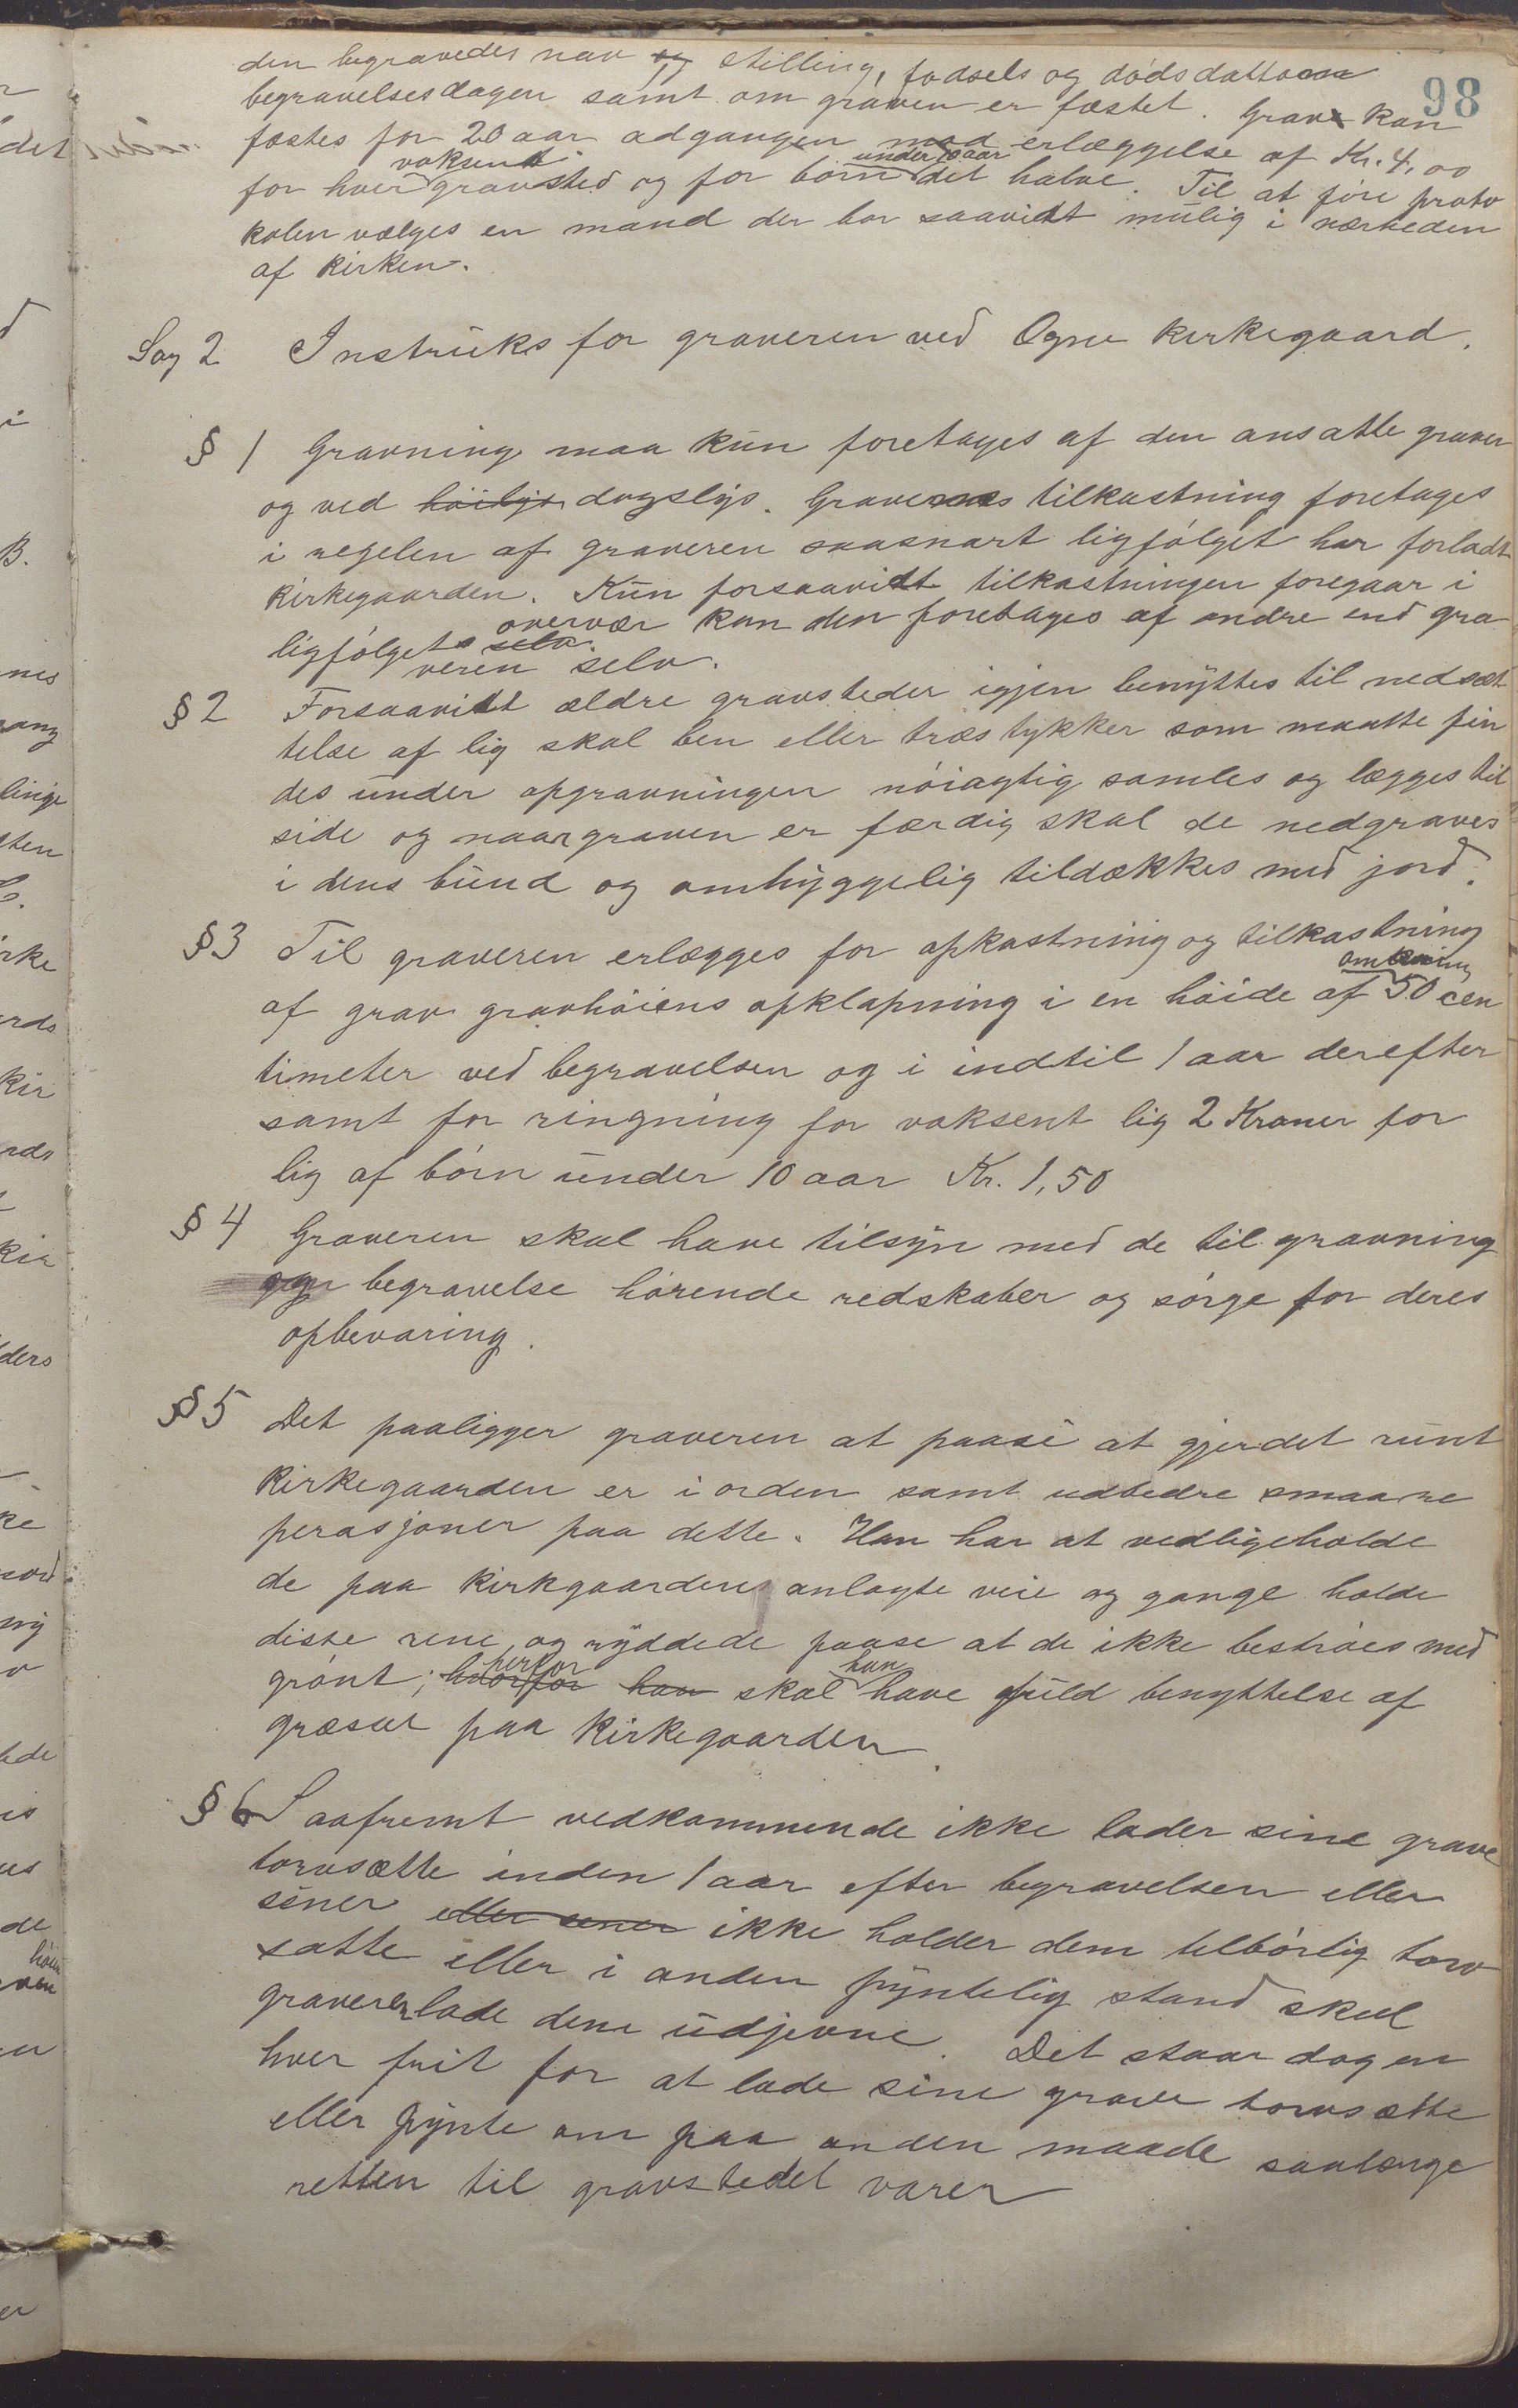 98
den begravedes navn og stilling, fødsels og dødsdatto
begravelsesdagen samt om graven er fæstet. Grav kan
fæstes for 20 aar adgangen mod erlæggelse af Kr. 4,00
for hver voksent gravsted og for børn under 10 aar det halve. Til at føre proto
kolen vælges en mand der bor saavidt mulig i nærheden
af kirken.
Sag 2 Instruks for graveren ved Ogne kirkegaard.
§ 1 Gravning maa kun foretages af den ansatte graver
og ved høilys dagslys. Gravenes tilkastning foretages
i regelen af graveren saasnart ligfølget har forladt
kirkegaarden. Kun forsaavidt tilkastningen foregaar i
ligfølgets selv overvær kan den foretages af andre end gra
veren selv.
§ 2 Forsaavidt ældre gravsteder igjen benyttes til nedsæt
telse af lig skal ben eller træstykker som maatte fin
des under opgravningen nøiagtig samles og lægges til
side og naar graven er færdig skal de nedgraves
i dens bund og omhyggelig tildækkes med jord.
§ 3 Til graveren erlægges for opkastning og tilkastning
af grav gravhøiens opklapning i en høide af omkring 50 cen
timeter ved begravelsen og i indtil 1 aar derefter
samt for ringning for voksent lig 2 Kroner for
lig af børn under 10 aar Kr. 1,50
§ 4 Graveren skal have tilsyn med de til gravning
og begravelse hørende redskaber og sørge for deres
opbevaring.
§ 5 Det paaligger graveren at paase at gjerdet runt
kirkegaarden er i orden samt udbedre smaa re
perasjoner paa dette. Han har at vedligeholde
de paa kirkgaardens anlagte veie og gange holde
disse rene, og ryddede paase at de ikke bestrøes med
grønt; hvorfor herfor han skal han have fuld benyttelse af
græsset paa kirkegaarden.
§ 6 Saafremt vedkommende ikke lader sine grave
torvsætte inden 1 aar efter begravelsen eller
sener eller sener ikke holder dem tilbørlig torv
satte eller i anden pyntelig stand skal
graveren lade dem udjevne. Det staar dog en
hver frit for at lade sine grave torvsætte
eller pynte om paa anden maade saalænge
retten til gravstedet varer